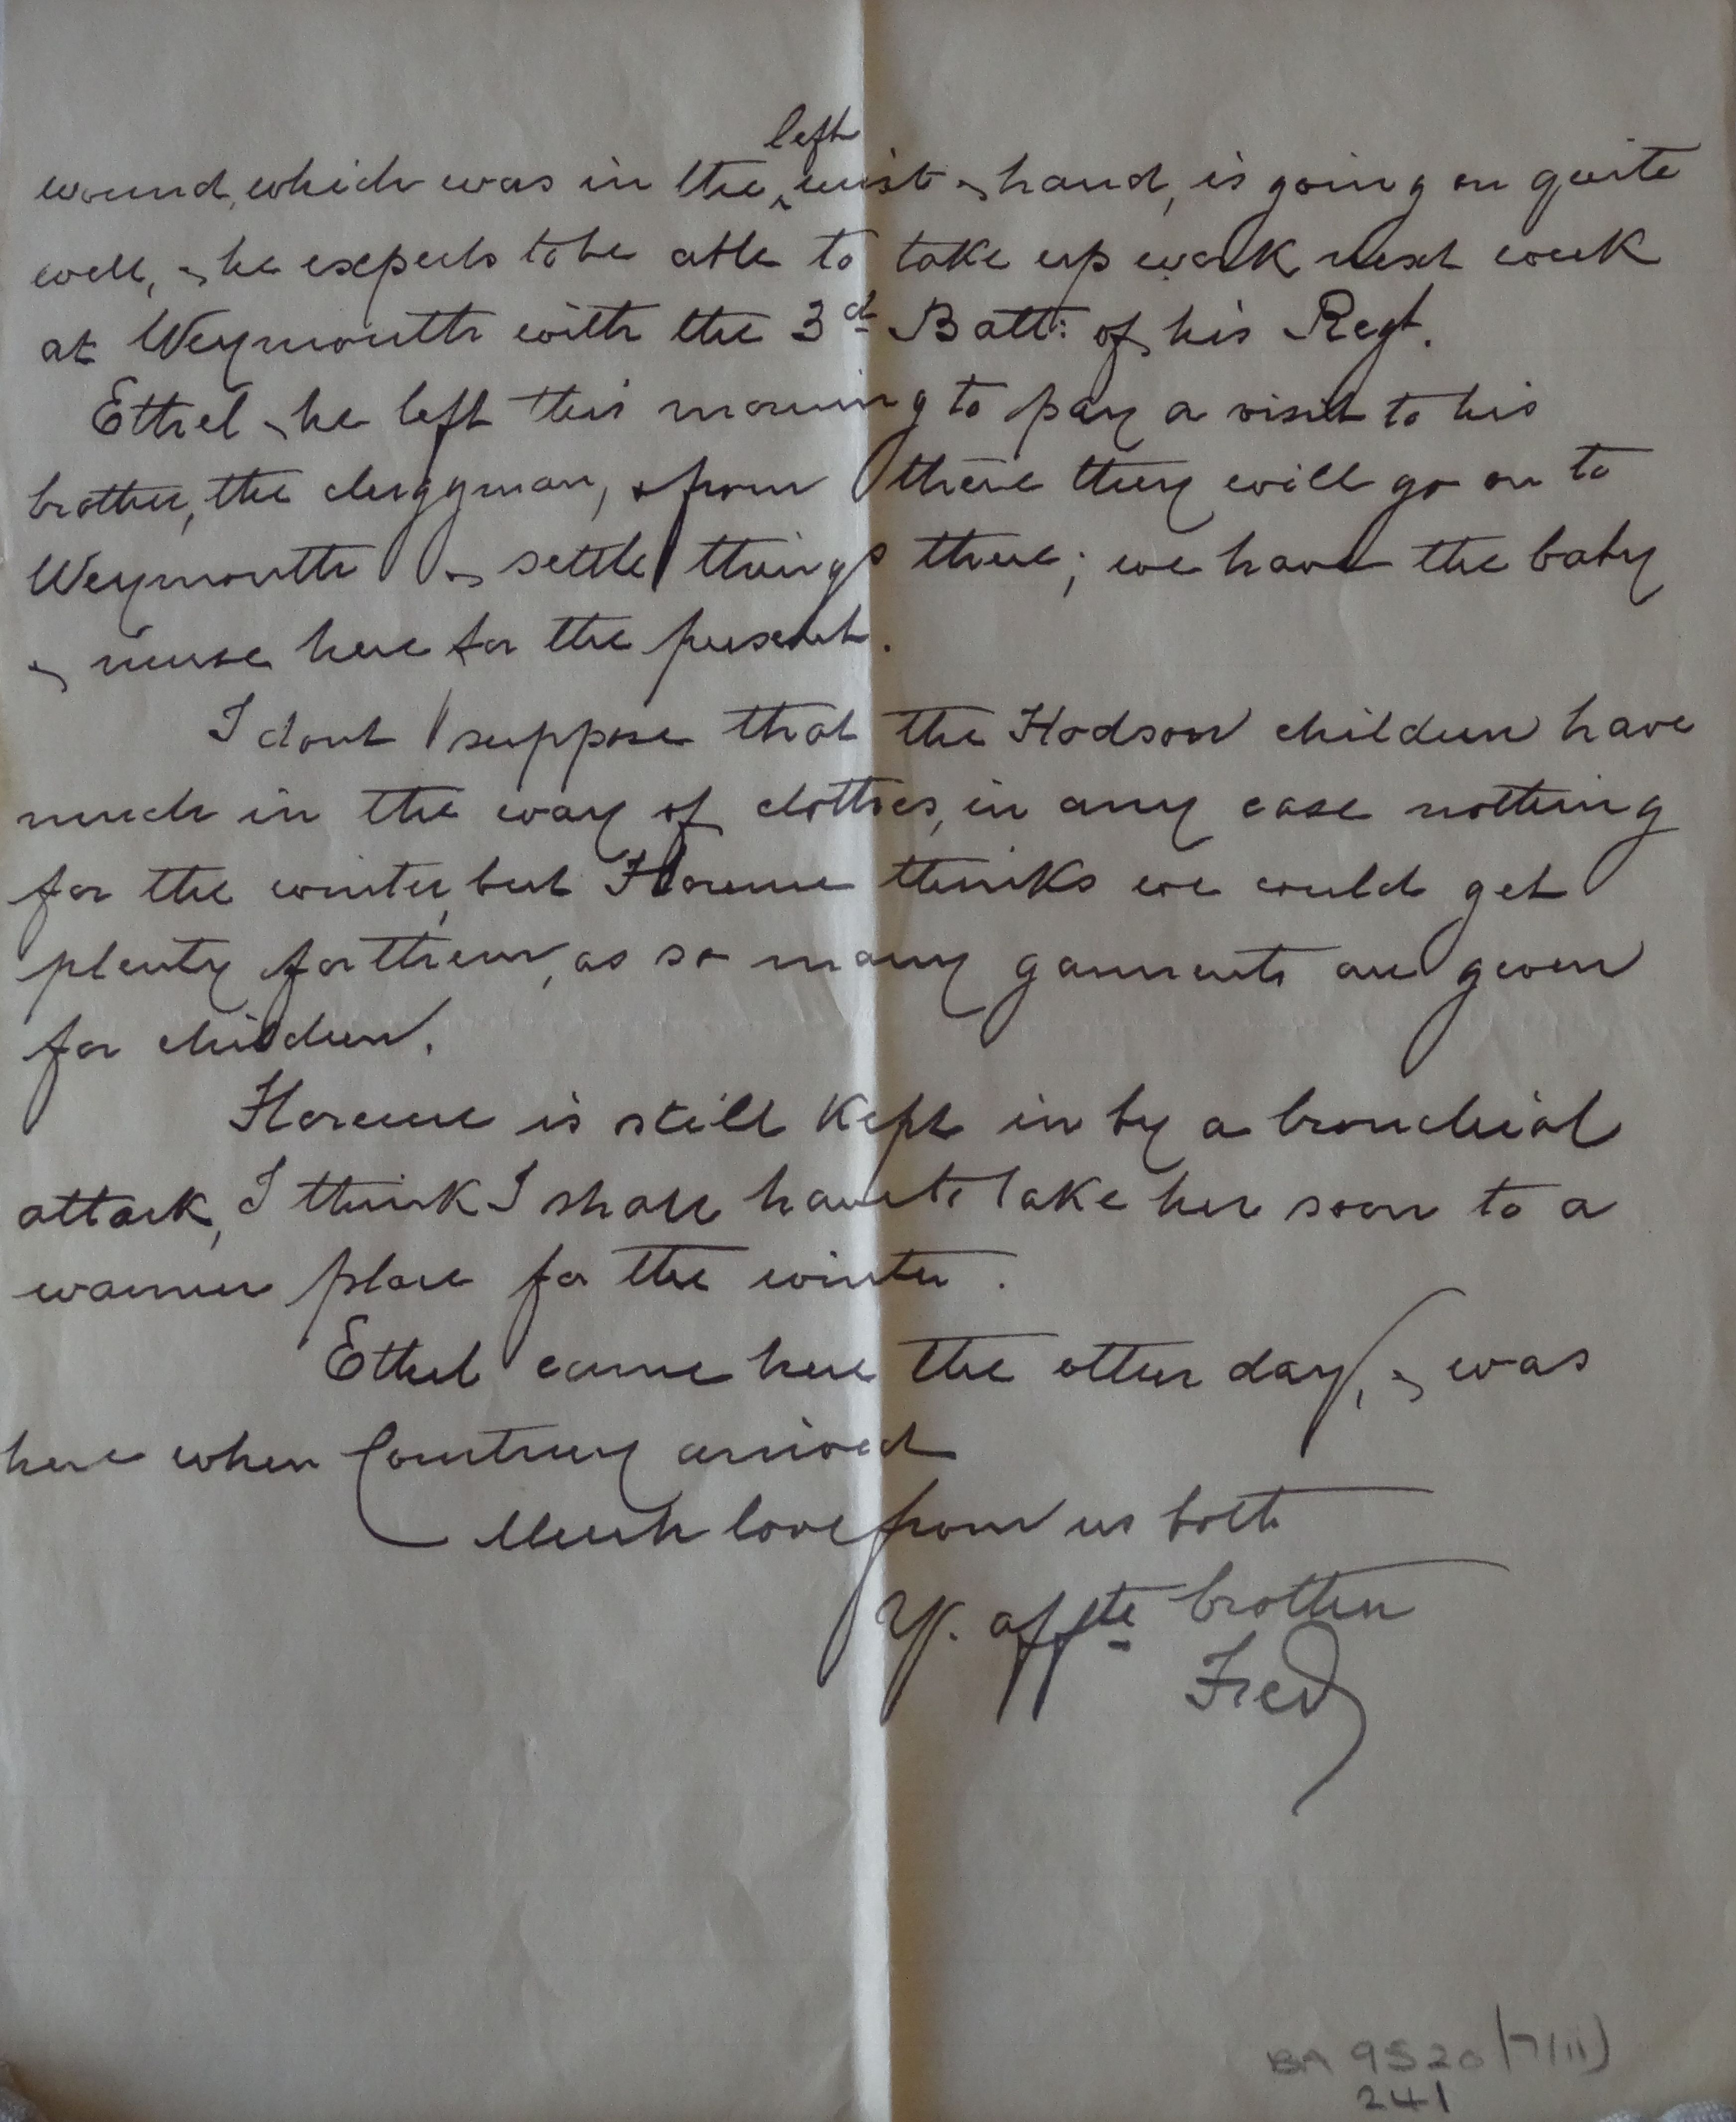 left
wound, which was in the ‸ wrist & hand, is going on quite
well, & he expects to be able to take up work next week
at Weymouth with the 3d Batt: of his Regt.
Ethel & he left this morning to pay a visit to his
brother, the clergyman, & from there they will go on to
Weymouth & settle things there; we have the baby
& nurse here for the present.
I dont suppose that the Hodson children have
much in the way of clothes, in any case nothing
for the winter, but Florence thinks we could get
plenty for them, as so many garments are given
for children.
Florence is still kept in by a bronchial
attack, I think I shall have to take her soon to a
warmer place for the winter.
Ethel came here the other day, & was
here when Courtney arrived
Much love from us both
Yr. affte brother
Fred
BA 9520 (7/11)
241